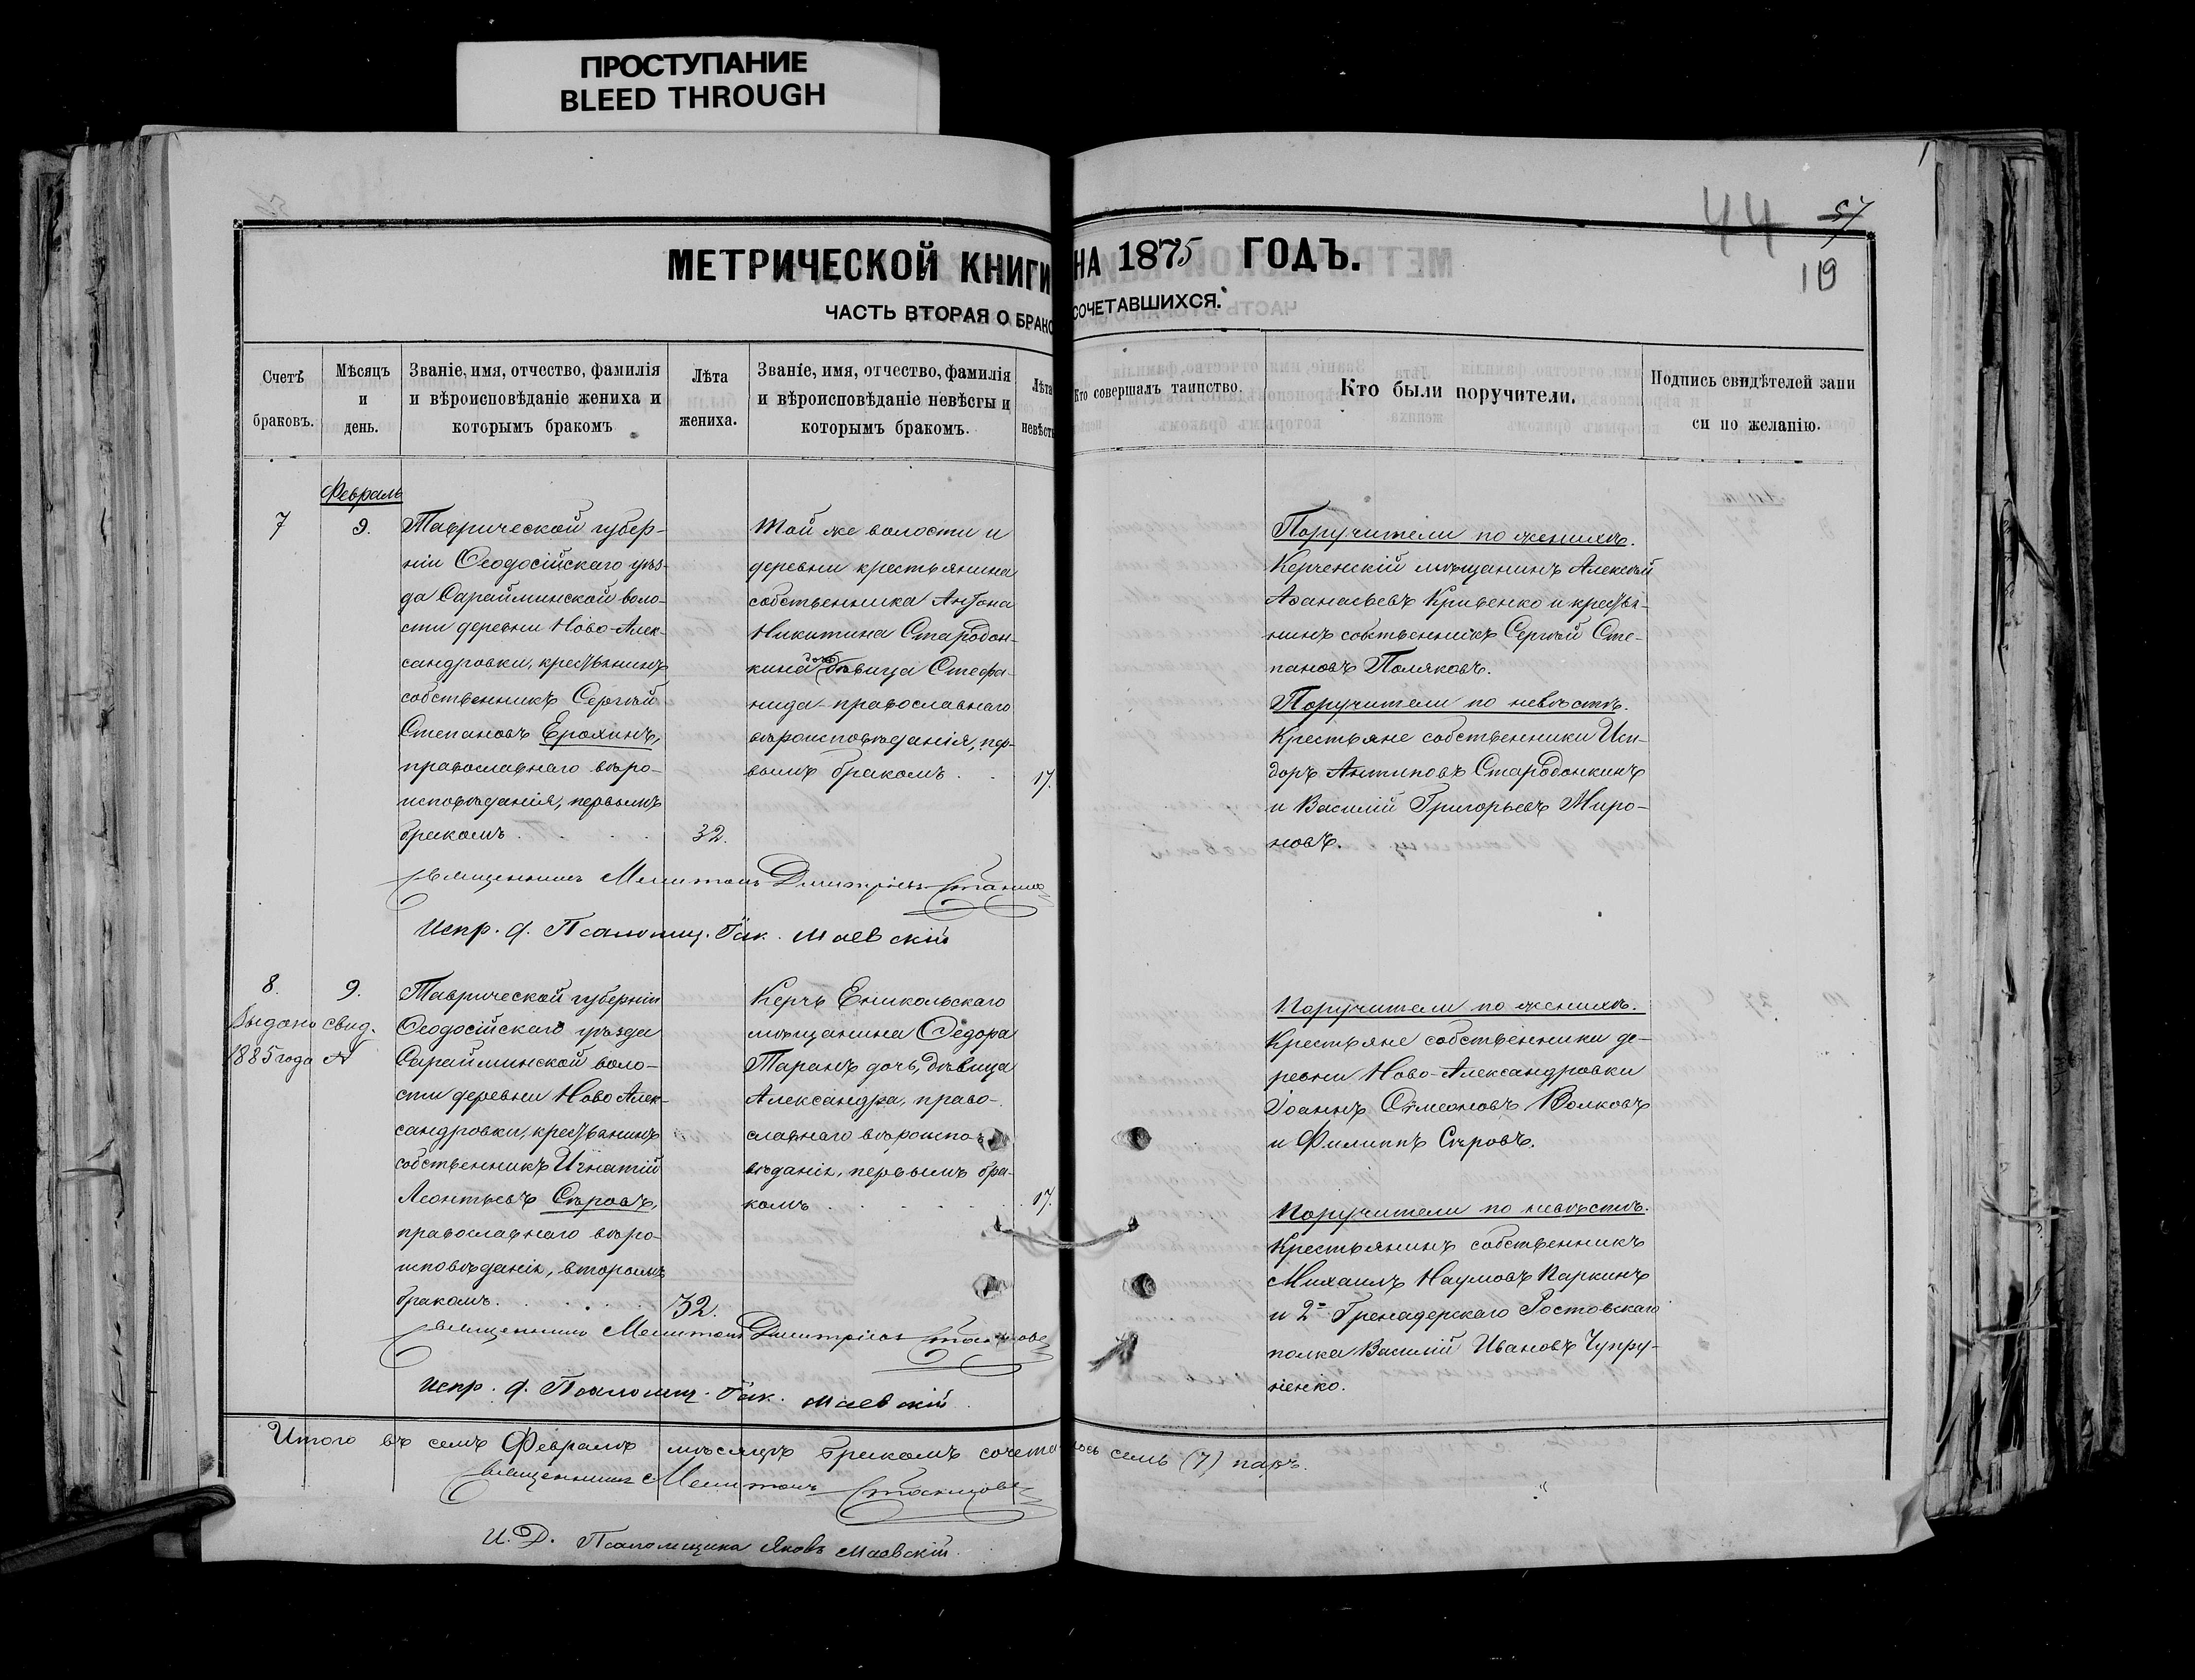 ПРОСТУПАНИЕ
BLEED THROUGH
44 57
119
МЕТРИЧЕСКОЙ КНИГИ НА 1875 ГОДЪ.
ЧАСТЬ ВТОРАЯ О БРАКОСОЧЕТАВШИХСЯ.
Счетъ
браковъ.
Мѣсяцъ
и
день.
Званіе, имя, отчество, фамилія
и вѣроисповѣданіе жениха и
которымъ бракомъ
Лѣта
жениха.
Званіе, имя, отчество, фамилія
и вѣроисповѣданіе невѣсты и
которымъ бракомъ.
Лѣта
невѣст
Кто совершалъ таинство.
Кто были поручители.
Подпись свидѣтелей запи
си по желанію.
Февраль
7
9.
Таврической губер-
ніи Ѳеодосійскаго уѣз-
да Сарайминской воло-
сти деревни Ново-Алек-
сандровки, крестьянинъ
собственникъ Сергѣй
Степановъ Ерохинъ,
православнаго вѣро-
исповѣданія, первымъ
бракомъ
32.
Той же волости и
деревни крестьянина
собственника Антона
Никитина Стародон-
кина дочь дѣвица Стефа-
нида православнаго
вѣроисповѣданія, пер-
вымъ бракомъ
17.
Поручители по женихѣ.
Керченскій мѣщанинъ Алексѣй
Аѳанасьевъ Кривенко и крестья-
нинъ собственникъ Сергѣй Сте-
пановъ Поляковъ.
Поручители по невѣстѣ.
Крестьяне собственники Иси-
доръ Антиповъ Стародонкинъ
и Василій Григорьевъ Миро-
новъ.
Священникъ Мелитонъ Димитріевъ
Испр. д. Псаломщ. Як. Маевскій
8.
9.
Выдано свид.
1885 года №
Таврической губерніи
Ѳеодосійскаго уѣзда
Сарайминской воло-
сти деревни Ново Алек-
сандровки, крестьянинъ
собственникъ Игнатій
Леонтьевъ Сѣровъ,
православнаго вѣро-
исповѣданія, вторымъ
бракомъ.
32.
Керчь Еникольскаго
мѣщанина Ѳедора
Таранъ дочь, дѣвица
Александра, право-
славнаго вѣроиспо-
вѣданія, первымъ бра-
комъ
17.
Поручители по женихѣ.
Крестьяне собственники де-
ревни Ново-Александровки
Іоаннъ Симеоновъ Волковъ
и Филиппъ Сѣровъ.
Поручители по невѣстѣ.
Крестьянинъ собственникъ
Михаилъ Наумовъ Паркинъ
и 2го Гренадерскаго Ростовскаго
полка Василій Ивановъ Чупру-
ненко.
Священникъ Мелитонъ Димитріевъ
Испр. д. Псаломщ. Як. Маевскій
Итого въ семъ Февралѣ мѣсяцѣ бракомъ сочеталось семь (7) паръ.
Священникъ Мелитонъ
И. Д. Псаломщика Яковъ Маевскій.